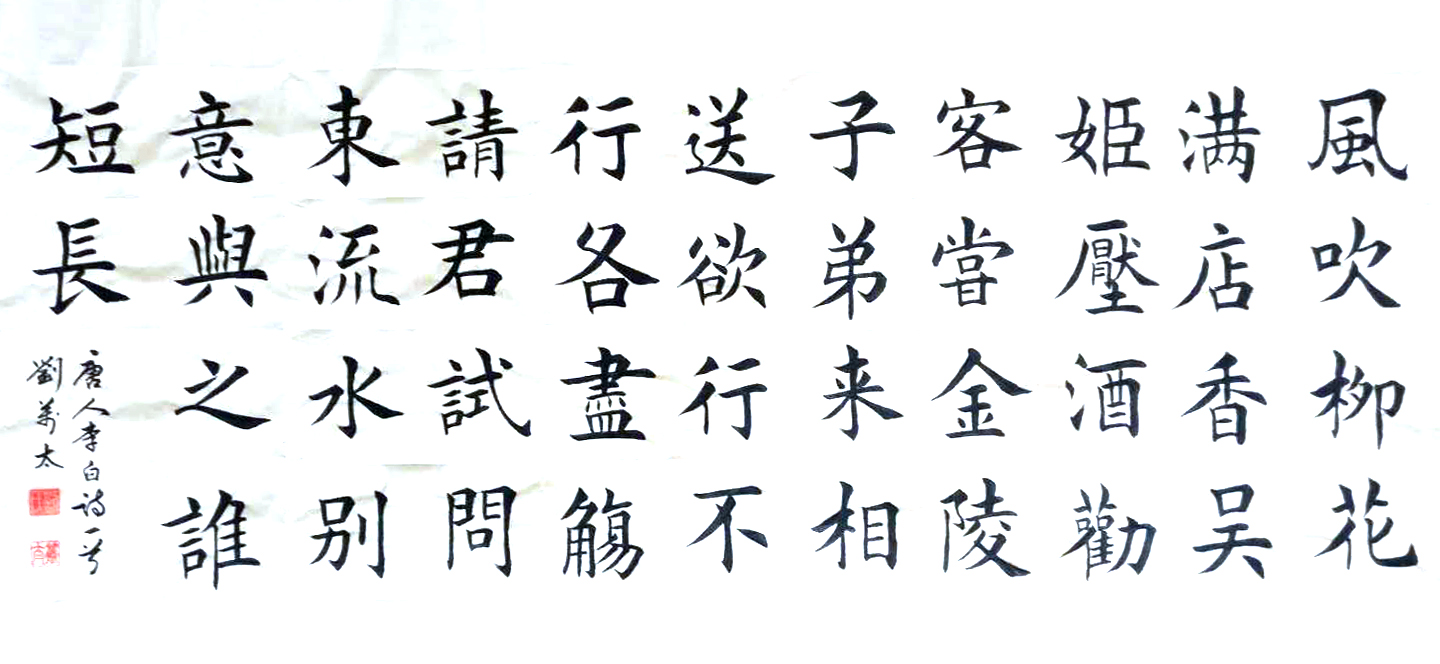 風吹柳花
满店香吴
姬壓酒勸
客嘗金陵
子弟来相
送欲行不
行各盡觴
請君試問
東流水别
意與之誰
短長
唐人李白诗一首
劉萬太